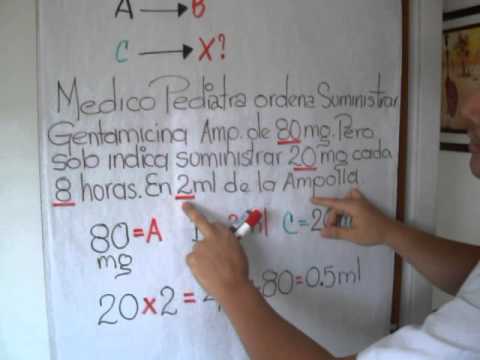 A → B
C → X?
Medico Pediatra ordena Suministrar
Gentamicina Amp. de 80 mg. Pero
solo indica suministrar 20 mg cada
8 horas. En 2 ml de la Ampolla.
80 = A C = 20
mg
20 x 2 = 80 = 0.5 ml